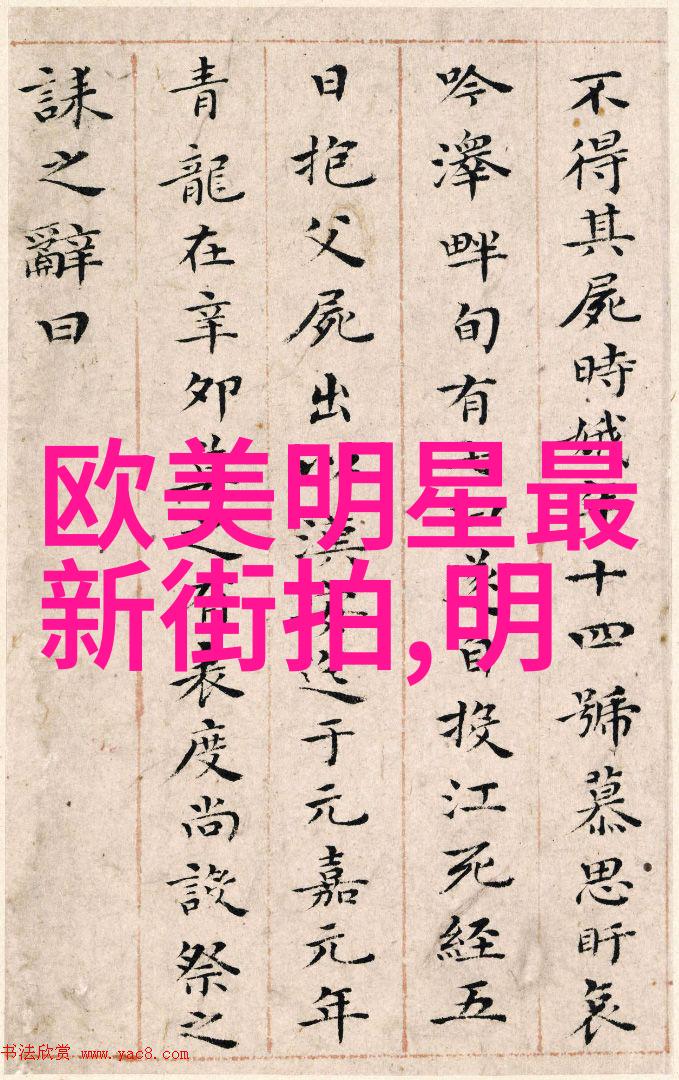 不得其屍時娥十四號慕思盱哀
吟澤畔旬有遂自投江死經五
日抱父屍出以漢迄于元嘉元年
青龍在辛卯莫之有表度尚設祭之
誄之辭曰
欧美明星最
新街拍,明
书法欣赏 www.yac8.com